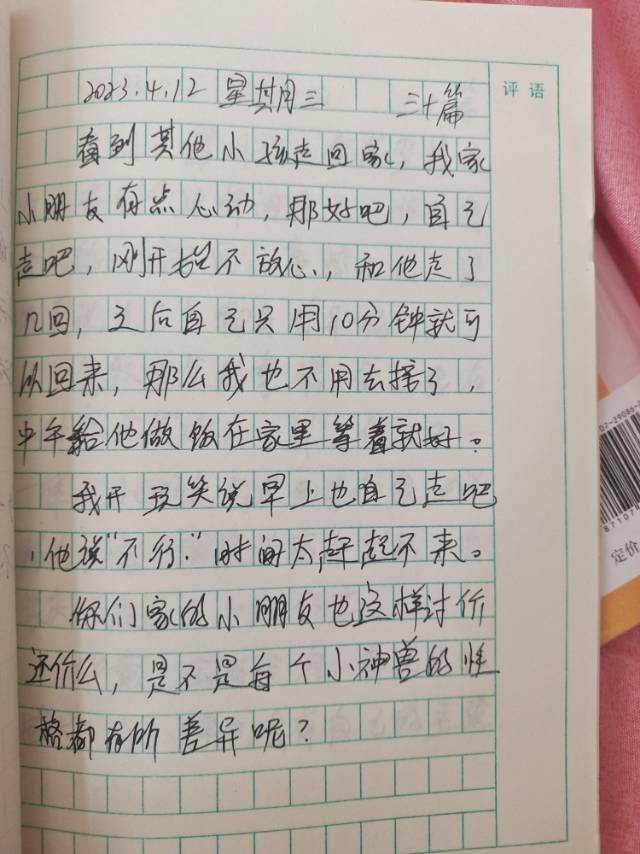 2023.4.12 星期三 三十篇
评语
看到其他小孩走回家，我家
小朋友有点心动，那好吧，自己
走吧，刚开始不放心，和他走了
几回，之后自己只用10分钟就可
以回来，那么我也不用去接了，
中午给他做饭在家里等着就好。
我开玩笑说早上也自己走吧
，他说“不行.”时间太赶起不来。
你们家的小朋友也这样讨价
还价么，是不是每个小神兽的性
格都有所差异呢？
定价